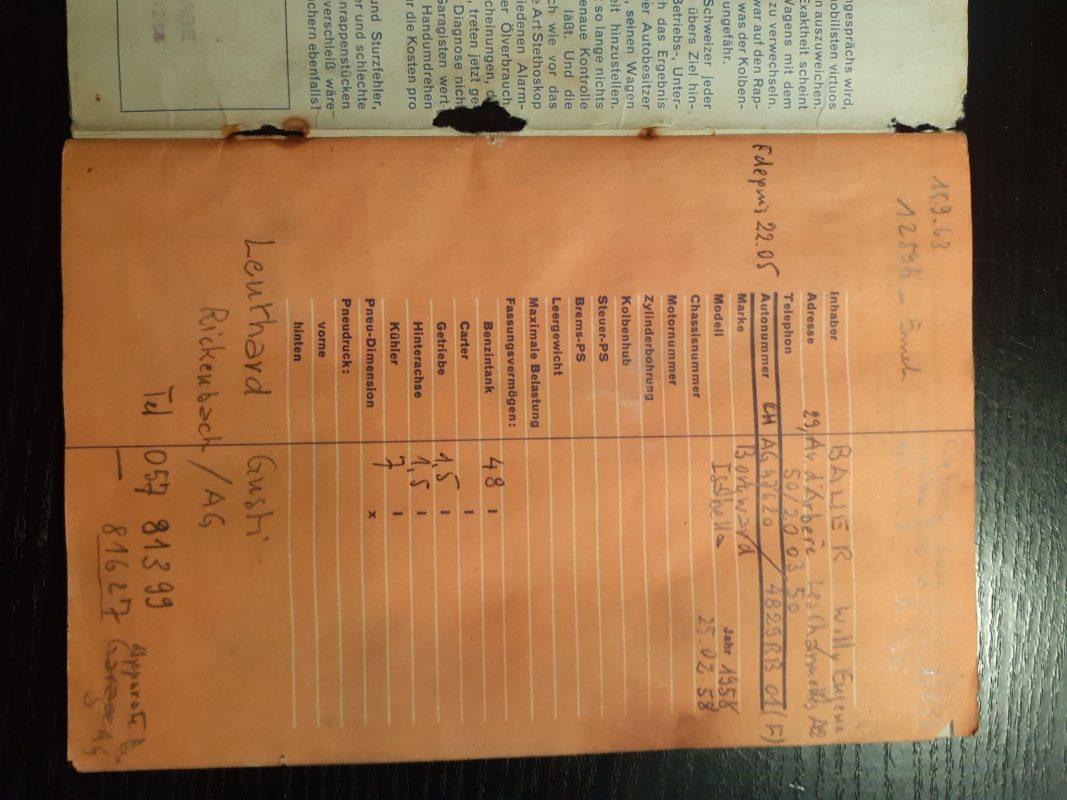 ngesprächs wird,
mobilisten virtuos
n auszuweichen.
Exaktheit scheint
Wagens mit dem
zu verwechseln.
war auf den Rap-
was der Kolben-
ungefähr.
Schweizer jeder
übers Ziel hin-
Betriebs-, Unter-
h das Ergebnis
er Autobesitzer
, seinen Wagen
eit hinzustellen.
so lange nichts
enaue Kontrolle
läßt. Und die
ch wie vor das
e Art Stethoskop
iedenen Alarm-
er Ölverbrauch
cheinungen,
, treten jetzt
Diagnose nich
Garagisten wert
Handumdrehen
ir die Kosten pro
und Sturzfehler,
er und schlechte
inrappenstücken
verschleiß wäre
chern ebenfalls!
AGE
15.9.63
12596
Inhaber BALIER Willy Eugene
Adresse 29, Av d'Arbère Les Charmettes
Telephon 50/20 03 50
depuis 22.05 Autonummer CH AG 47620 / 4829RB 01 (F)
Marke Borgward
Modell Isabella Jahr 1958
Chassisnummer 25.02.58
Motornummer
Zylinderbohrung
Kolbenhub
Steuer-PS
Brems-PS
Leergewicht
Maximale Belastung
Fassungsvermögen:
Benzintank 48 l
Carter l
Getriebe 1,5 l
Hinterachse 1,5 l
Kühler 7 l
Pneu-Dimension x
Pneudruck:
vorne
hinten
Leuthard Gusti
Rickenbach /AG
Tel 057 81399 Apparate
81627 Garage AG